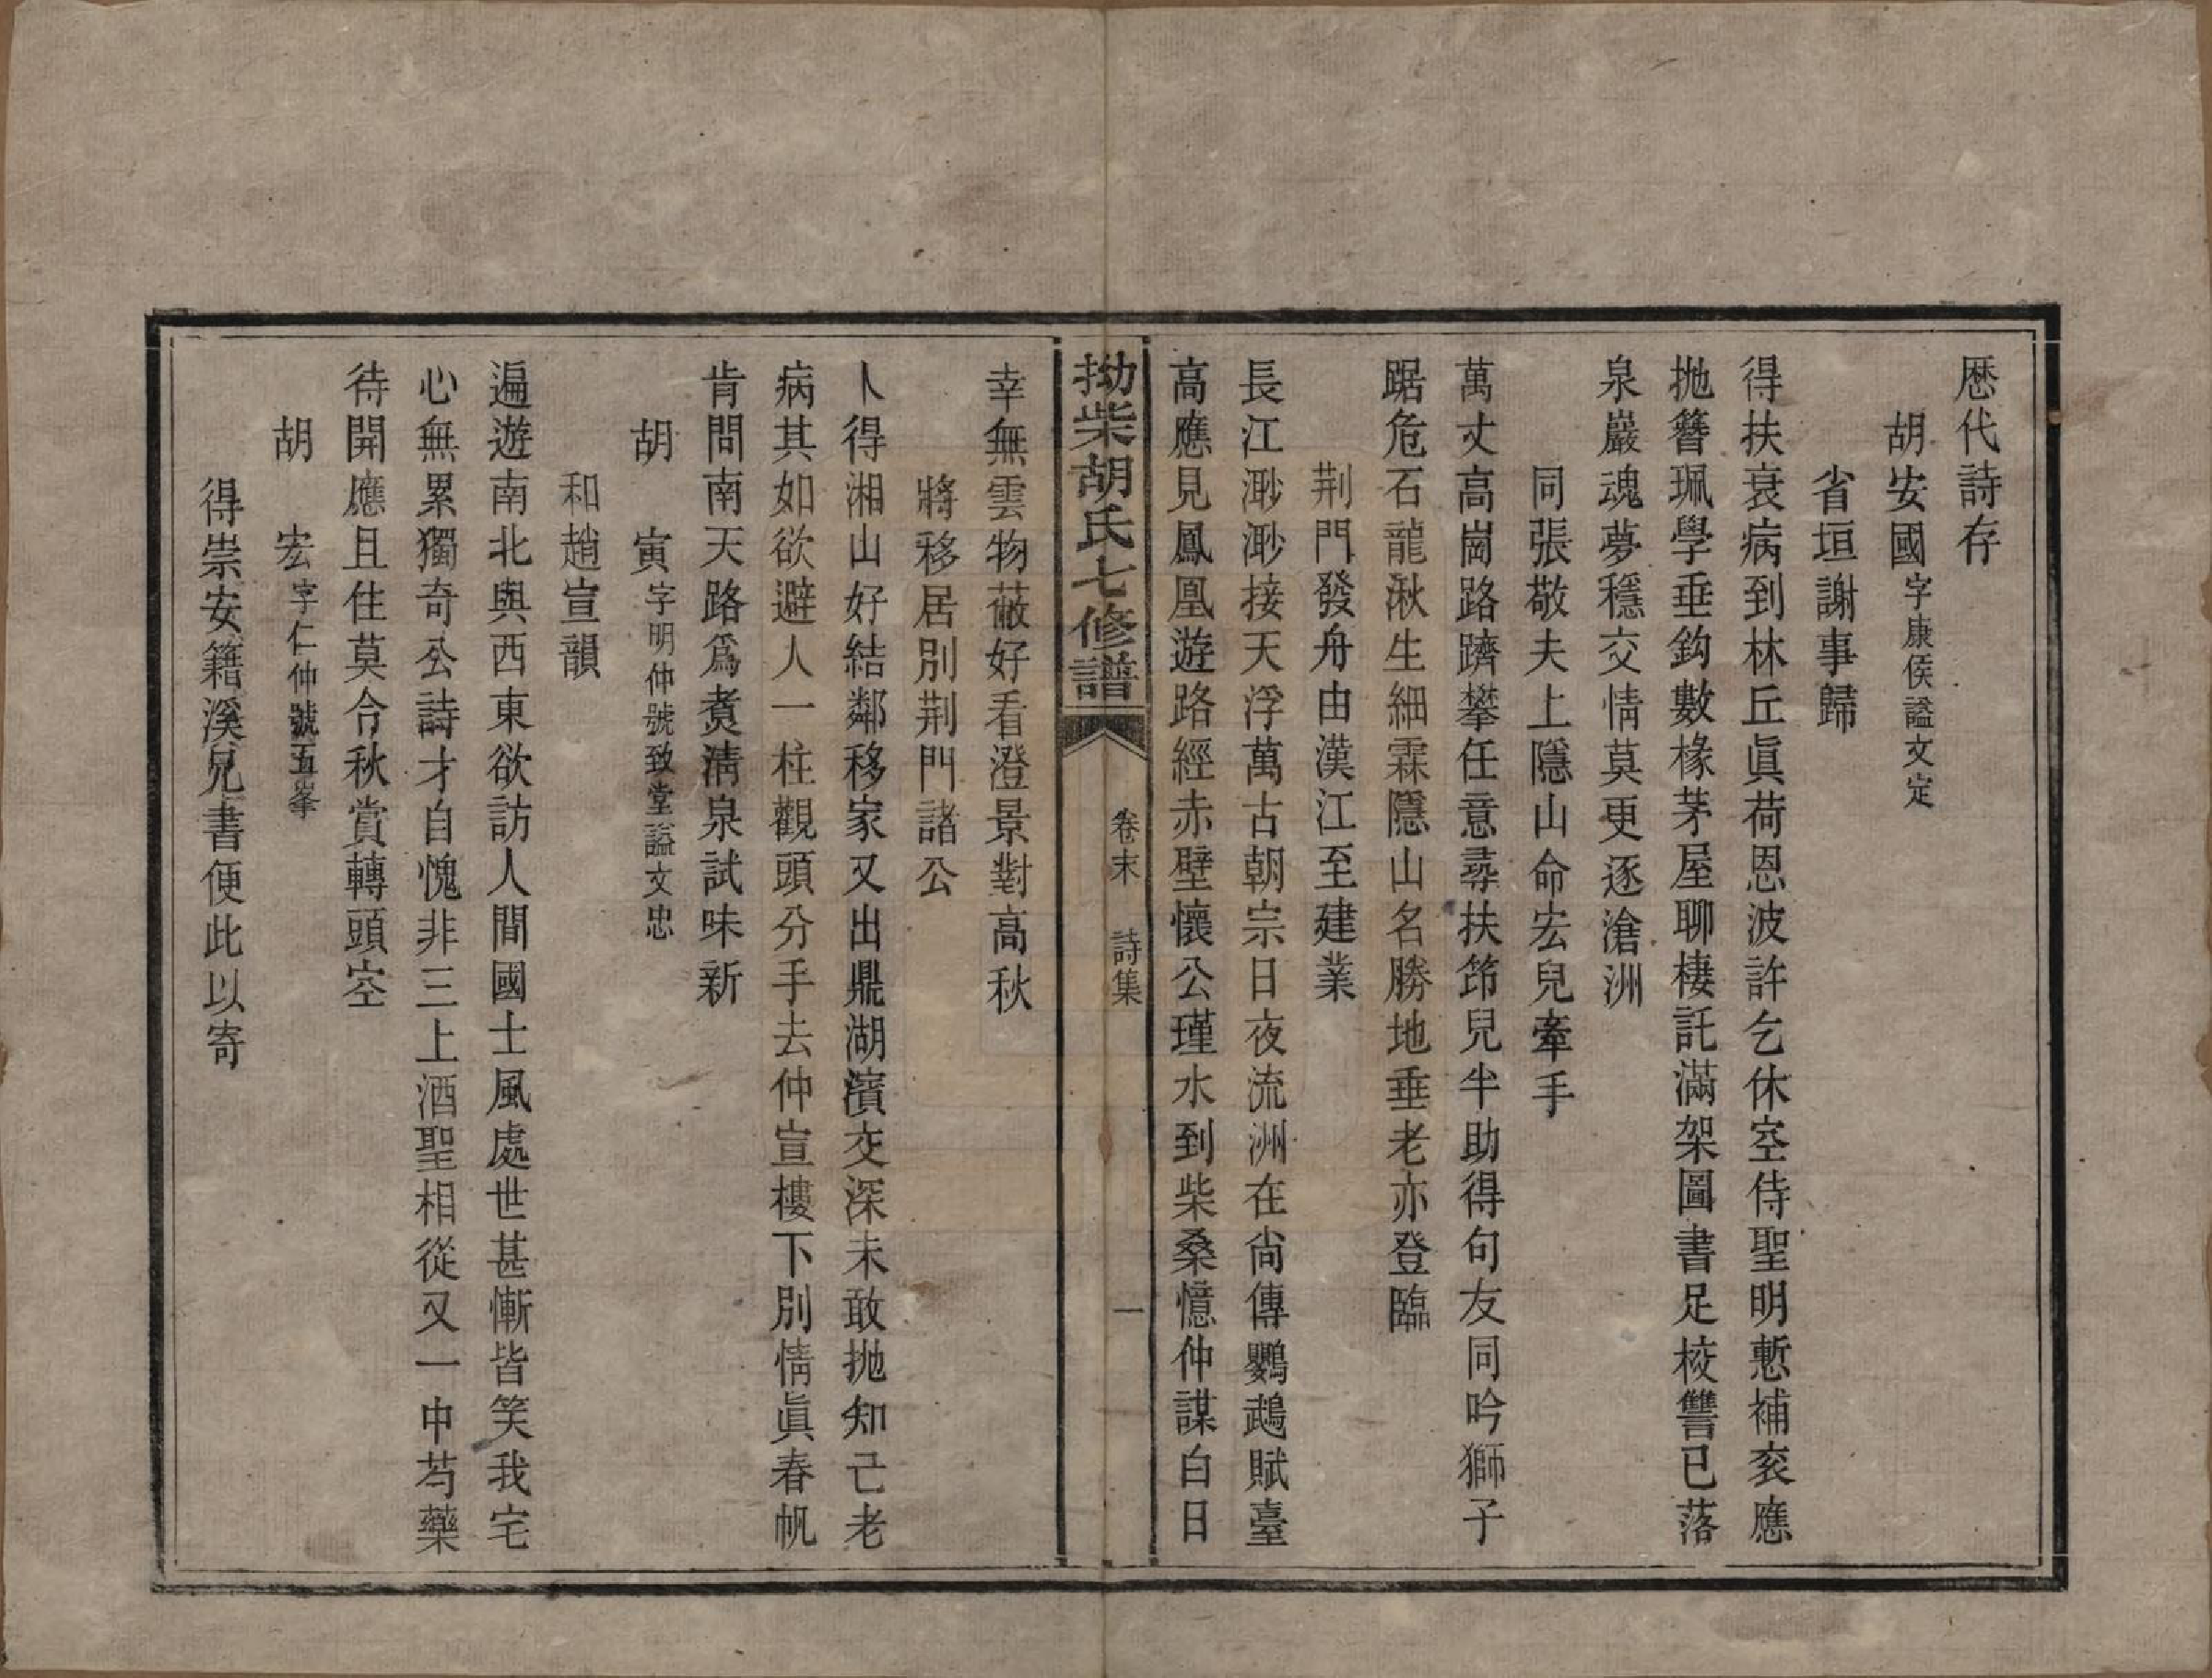 歷代詩存
胡安國字康侯謚文定
省垣謝事歸
得扶衰病到林丘眞荷恩波許乞休空侍聖明慙補袞應
抛簪珮學垂鈎數椽茅屋聊棲託滿架圖書足校讐已落
泉巖魂夢穩交情莫更逐滄洲
同張敬夫上隱山命宏兒牽手
萬丈高崗路躋攀任意尋扶笻兒半助得句友同吟獅子
踞危石龍湫生細霖隱山名勝地垂老亦登臨
荆門發舟由漢江至建業
長江渺渺接天浮萬古朝宗日夜流洲在尙傳鸚鵡賦臺
高應見鳳凰遊路經赤壁懷公瑾水到柴桑憶仲謀白日
拗柴胡氏七修譜
卷末 詩集
一
幸無雲物蔽好看澄景對高秋
將移居別荆門諸公
卜得湘山好結鄰移家又出鼎湖濱交深未敢抛知己老
病其如欲避人一柱觀頭分手去仲宣樓下別情眞春帆
肯問南天路爲煑淸泉試味新
胡 寅字明仲號致堂謚文忠
和趙宣韻
遍遊南北與西東欲訪人間國士風處世甚慚皆笑我宅
心無累獨奇公詩才自愧非三上酒聖相從又一中芍藥
待開應且住莫令秋賞轉頭空
胡 宏字仁仲號五峯
得崇安籍溪兄書便此以寄